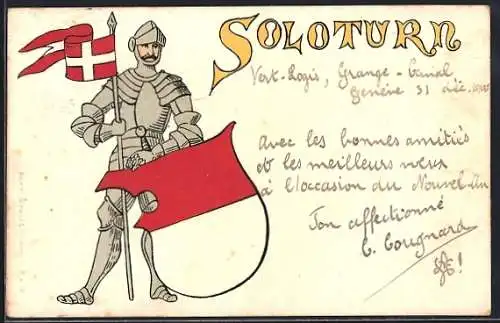 SOLOTURN
Vert-Logis, Grange-Canal,
Genève 31 déc. 1900
Avec les bonnes amitiés
et les meilleurs vœux
à l'occasion du Nouvel-An
Ton affectionné
E. Cougnard